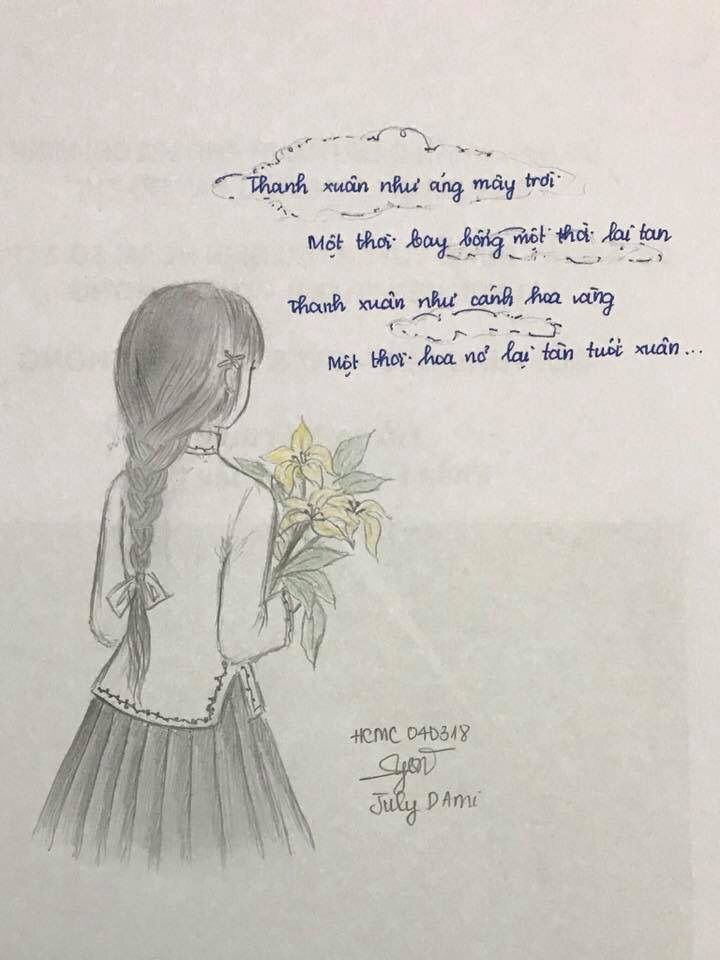 Thanh xuân như áng mây trôi
Một thời bay bổng một thời lại tan
Thanh xuân như cánh hoa vàng
Một thời hoa nở lại tàn tuổi xuân...
HCMC 040318
July DAmi